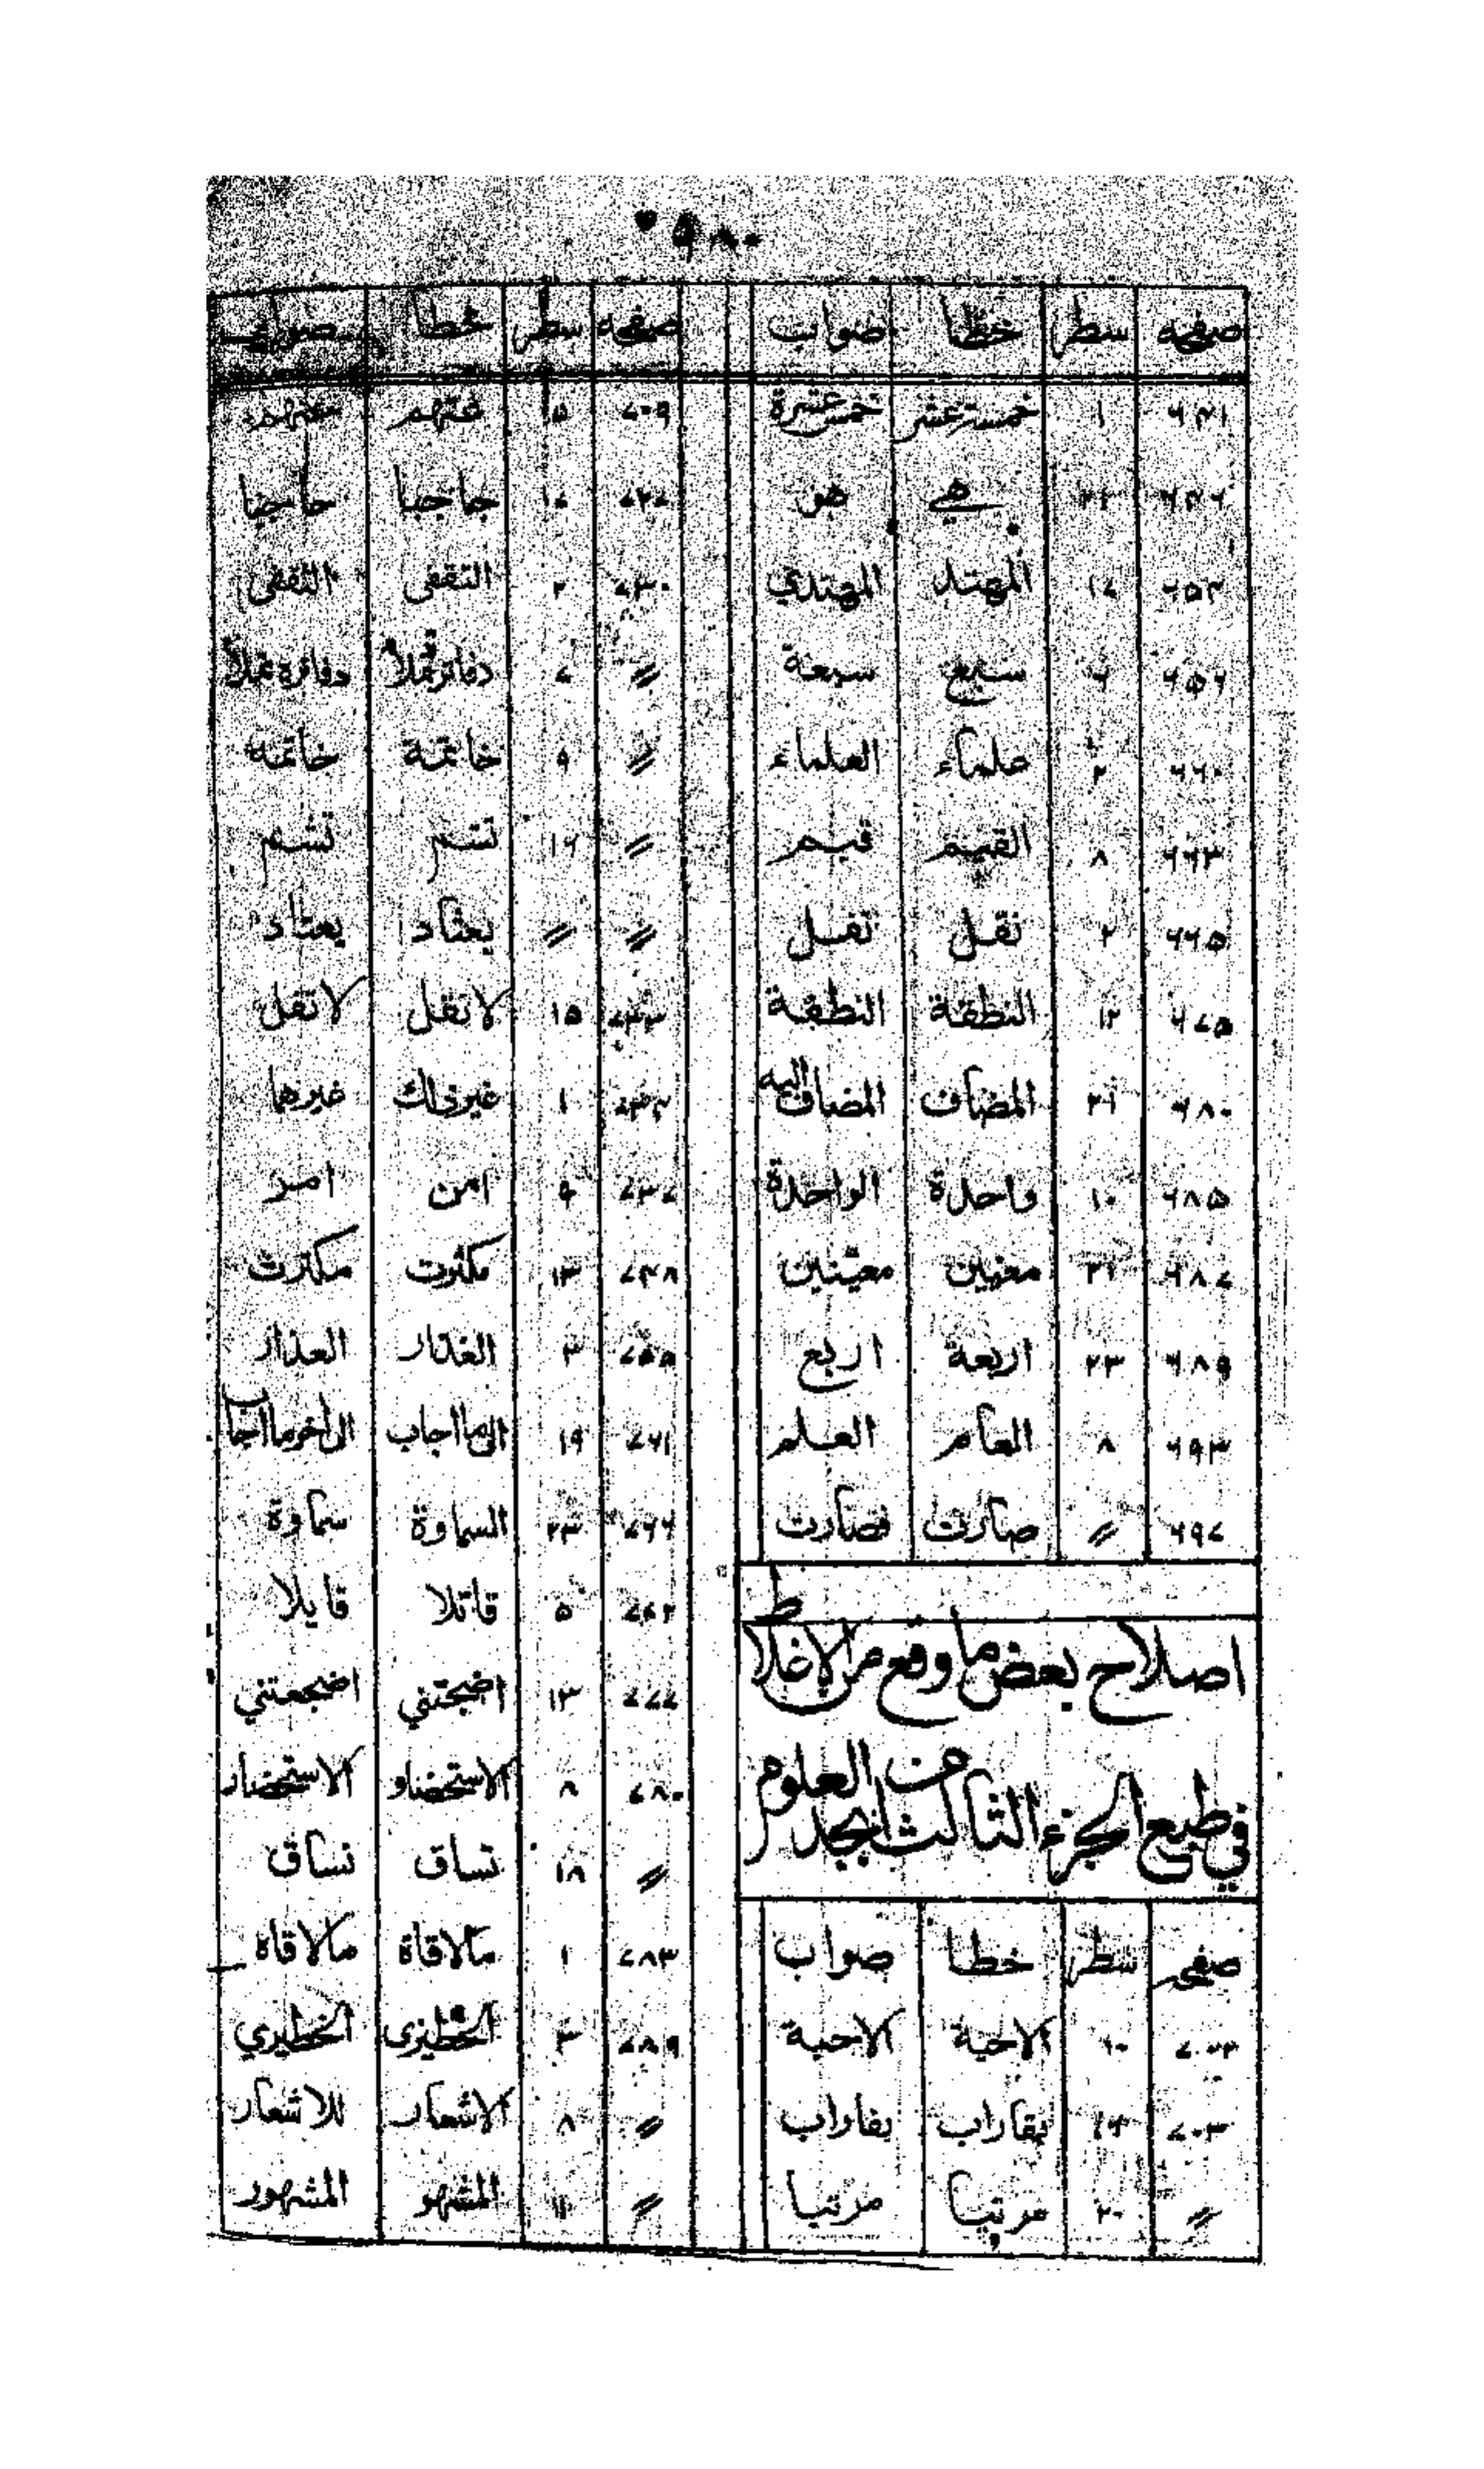 ٩٨٠
صفحه سطر خطا صواب
٦٤١ ١ خمستر عشر خمس عشرة
٦٤٦ ٢٢ هي هو
٦٥٣ ١٧ المهتد المهتدي
٦٥٦ ٦ سبع سبعة
٦٦٠ ٢ علماء العلماء
٦٦٣ ٨ القيم قيم
٦٦٥ ٢ نقل نفل
٦٧٥ ١٢ النطقة النطفة
٦٨٠ ٢١ المضاف المضاف اليه
٦٨٥ ١٠ واحدة الواحدة
٦٨٧ ٢١ معنيين معيّنين
٦٨٩ ٢٣ اربعة اربع
٦٩٣ ٨ العام العلم
٦٩٧ 〃 صارت فصارت
اصلاح بعض ما وقع من الاغلاط
في طبع الجزء الثالث من ابجد العلوم
صفحه سطر خطا صواب
٧٠٢ ١٠ الاحية الاحبة
٧٠٣ ١٦ بقاراب بفاراب
〃 ٢٠ مرتيبا مرتبا
صفحه سطر خطا صواب
٧٠٩ ١٥ عتهم عنهم
٧٢٧ ١٧ جاجبا حاجبا
٧٣٠ ٢ التقفى الثقفى
〃 ٧ دفاتر تملأ دفاتره تملأ
〃 ٩ خاتمة خاتمه
〃 ١٦ تسم تشم
〃 〃 يعثاد يعتاد
٧٣٣ ١٥ لا نقل لا تقل
٧٣٤ ١ غير ذلك غيرها
٧٣٧ ٩ امن امر
٧٤٨ ١٣ مكثرت مكترث
٧٥٥ ٣ الغذار العذار
٧٦١ ١٩ الى ما اجاب الى اخر ما اجاب
٧٦٦ ٢٣ السماوة سماوة
٥ قاتلا قايلا
٧٧٧ ١٣ اضجتني اضجعتني
٧٨٠ ٨ الاستحضاو الاستحضار
〃 ١٨ تساق نساق
٧٨٣ ١ مالاقاة ملاقاة
٧٨٩ ٣ الخطيزى الخطيري
〃 ٨ الاشعار للاشعار
〃 ١١ المشهو المشهور